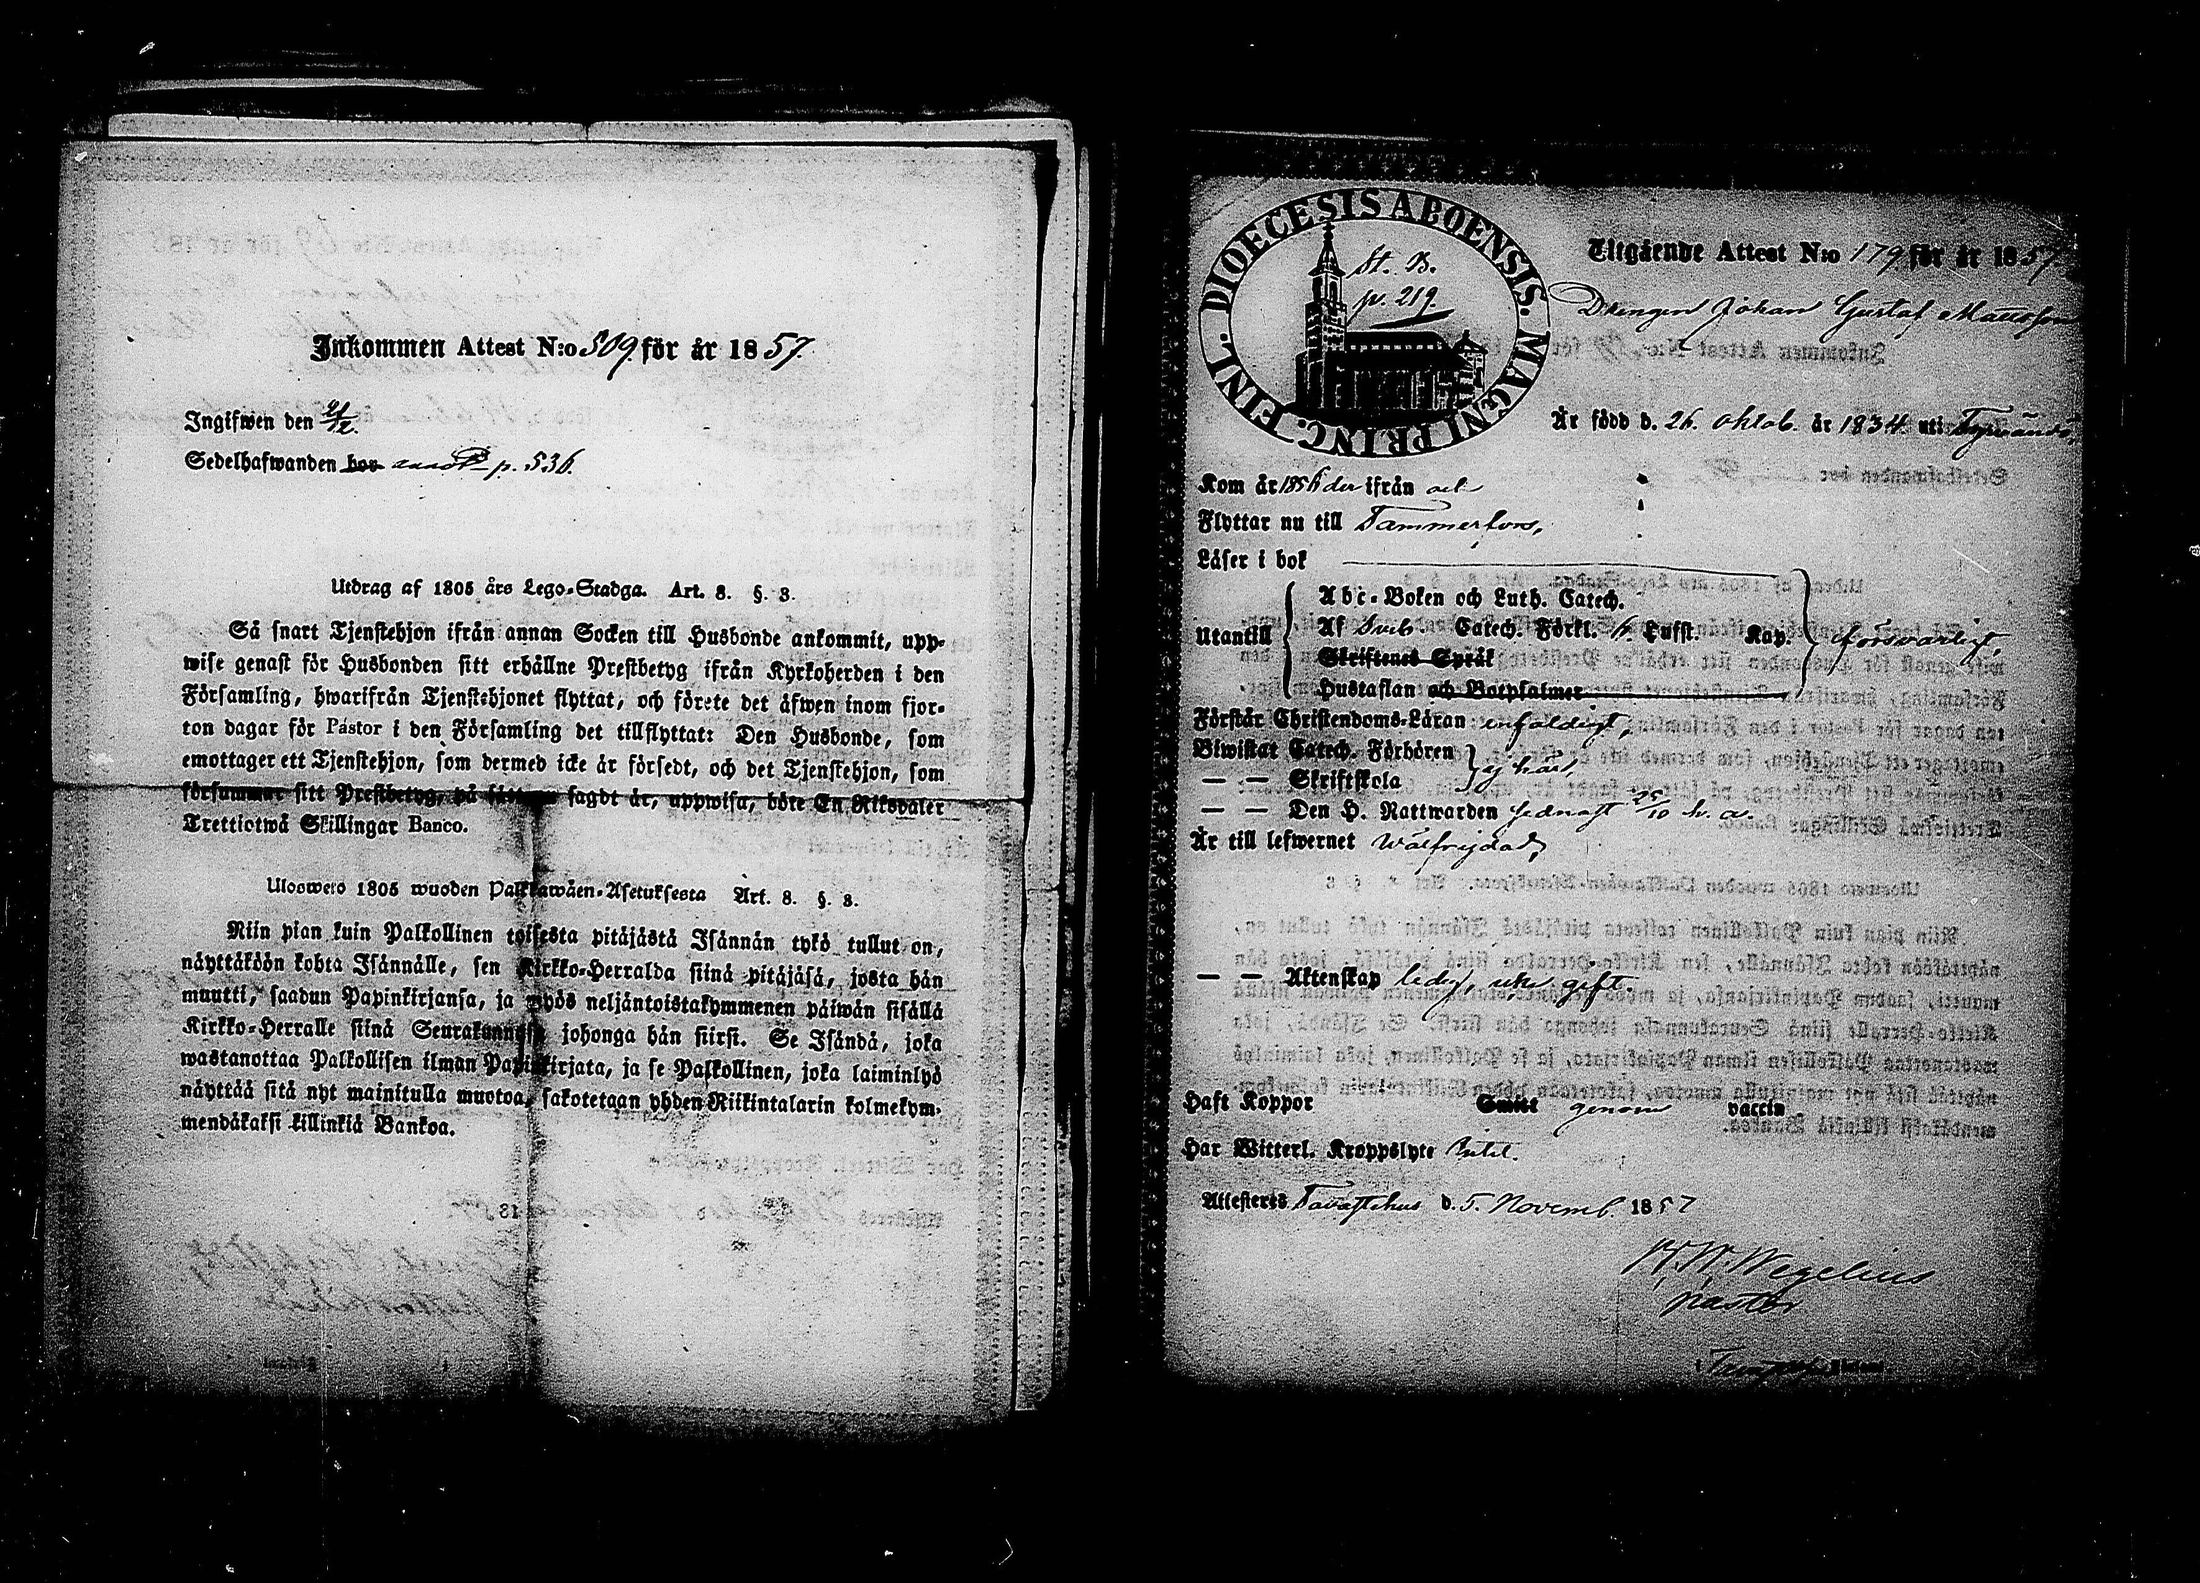 Inkommen Attest N:o 509 för år 1857.
Ingifwen den 21/12.
Sedelhafwanden bor p. 536.
Utdrag af 1805 års Lego-Stadga. Art. 8. §. 3.
Så snart Tjenstehjon ifrån annan Socken till Husbonde ankommit, upp-
wise genast för Husbonden sitt erhållne Prestbetyg ifrån Kyrkoherden i den
Församling, hwarifrån Tjenstehjonet flyttat, och förete det äfwen inom fjor-
ton dagar för Pastor i den Församling det tillflyttat: Den Husbonde, som
emottager ett Tjenstehjon, som dermed icke är försedt, och det Tjenstehjon, som
försummar sitt Prestbetyg, på sätt som sagdt är, uppwisa, böte En Riksdaler
Trettiotwå Skillingar Banco.
Uloswero 1805 wuoden Palkkawäen-Asetuksesta Art. 8. §. 3.
Niin pian kuin Palkollinen toisesta pitäjästä Isännän tykö tullut on,
näyttäköön kohta Isännälle, sen Kirkko-Herralda siinä pitäjäsä, josta hän
muutti, saadun Papinkirjansa, ja myös neljäntoistakymmenen päiwän sisällä
Kirkko-Herralle siinä Seurakunnasa johonga hän siirsi. Se Isändä, joka
wastanottaa Palkollisen ilman Papinkirjata, ja se Palkollinen, joka laiminlyö
näyttää sitä nyt mainitulla muotoa, sakotetaan yhden Riikintalarin kolmekym-
mendäkaksi killinkiä Bankoa.
DIOECESIS ABOENSIS. MAGNI PRINC. FINL.
St. B.
p. 219.
Utgående Attest N:o 179 för år 1857
Drengen Johan Gustaf Mattsson
Är född d. 26. oktob. år 1834 uti Tyrvändö,
Kom år 1856 der ifrån
Flyttar nu till Tammerfors,
Läser i bok
Utantill
Abc-Boken och Luth. Catech.
Af Sveb. Catech. Förkl. h. Lufft. Kap.
Skriftenes Språk
Hustaflan och Botpsalmer
försvarligt,
Förstår Christendoms-Läran enfaldigt,
Biwistat Catech. Förhören
— — Skriftskola
ej här,
— — Den H. Nattwarden sednast 25/10 h. a.
Är till lefwernet wälfrejdad,
— — Äktenskap ledig, icke gift.
Haft Koppor Smitt genom vaccin
Har Witterl. Kroppslyte intet.
Attesteres Tavastehus d. 5. Novemb. 1857
Wegelius
pastor